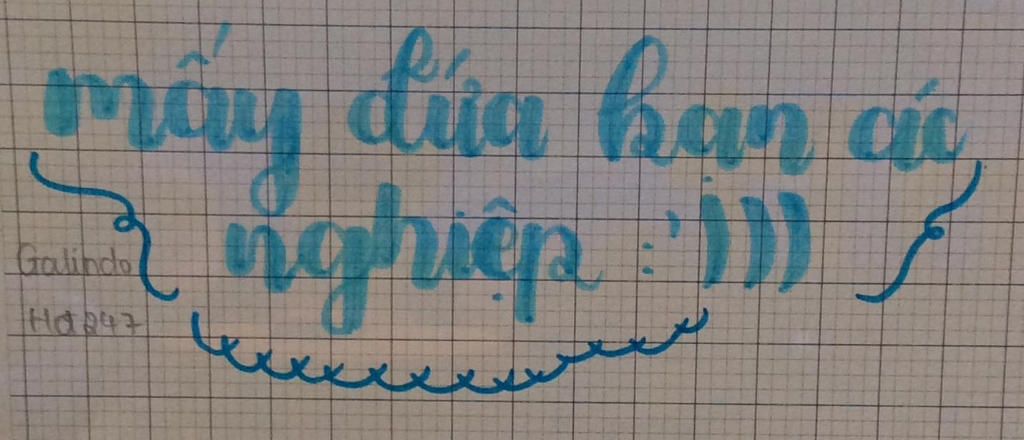 mấy đứa bạn ác
nghiệp :')))
Galindo
Hd247